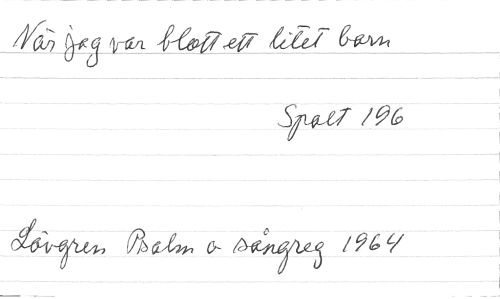 När jag var blott ett litet barn
Spalt 196
Lövgren Psalm o sångreg 1964